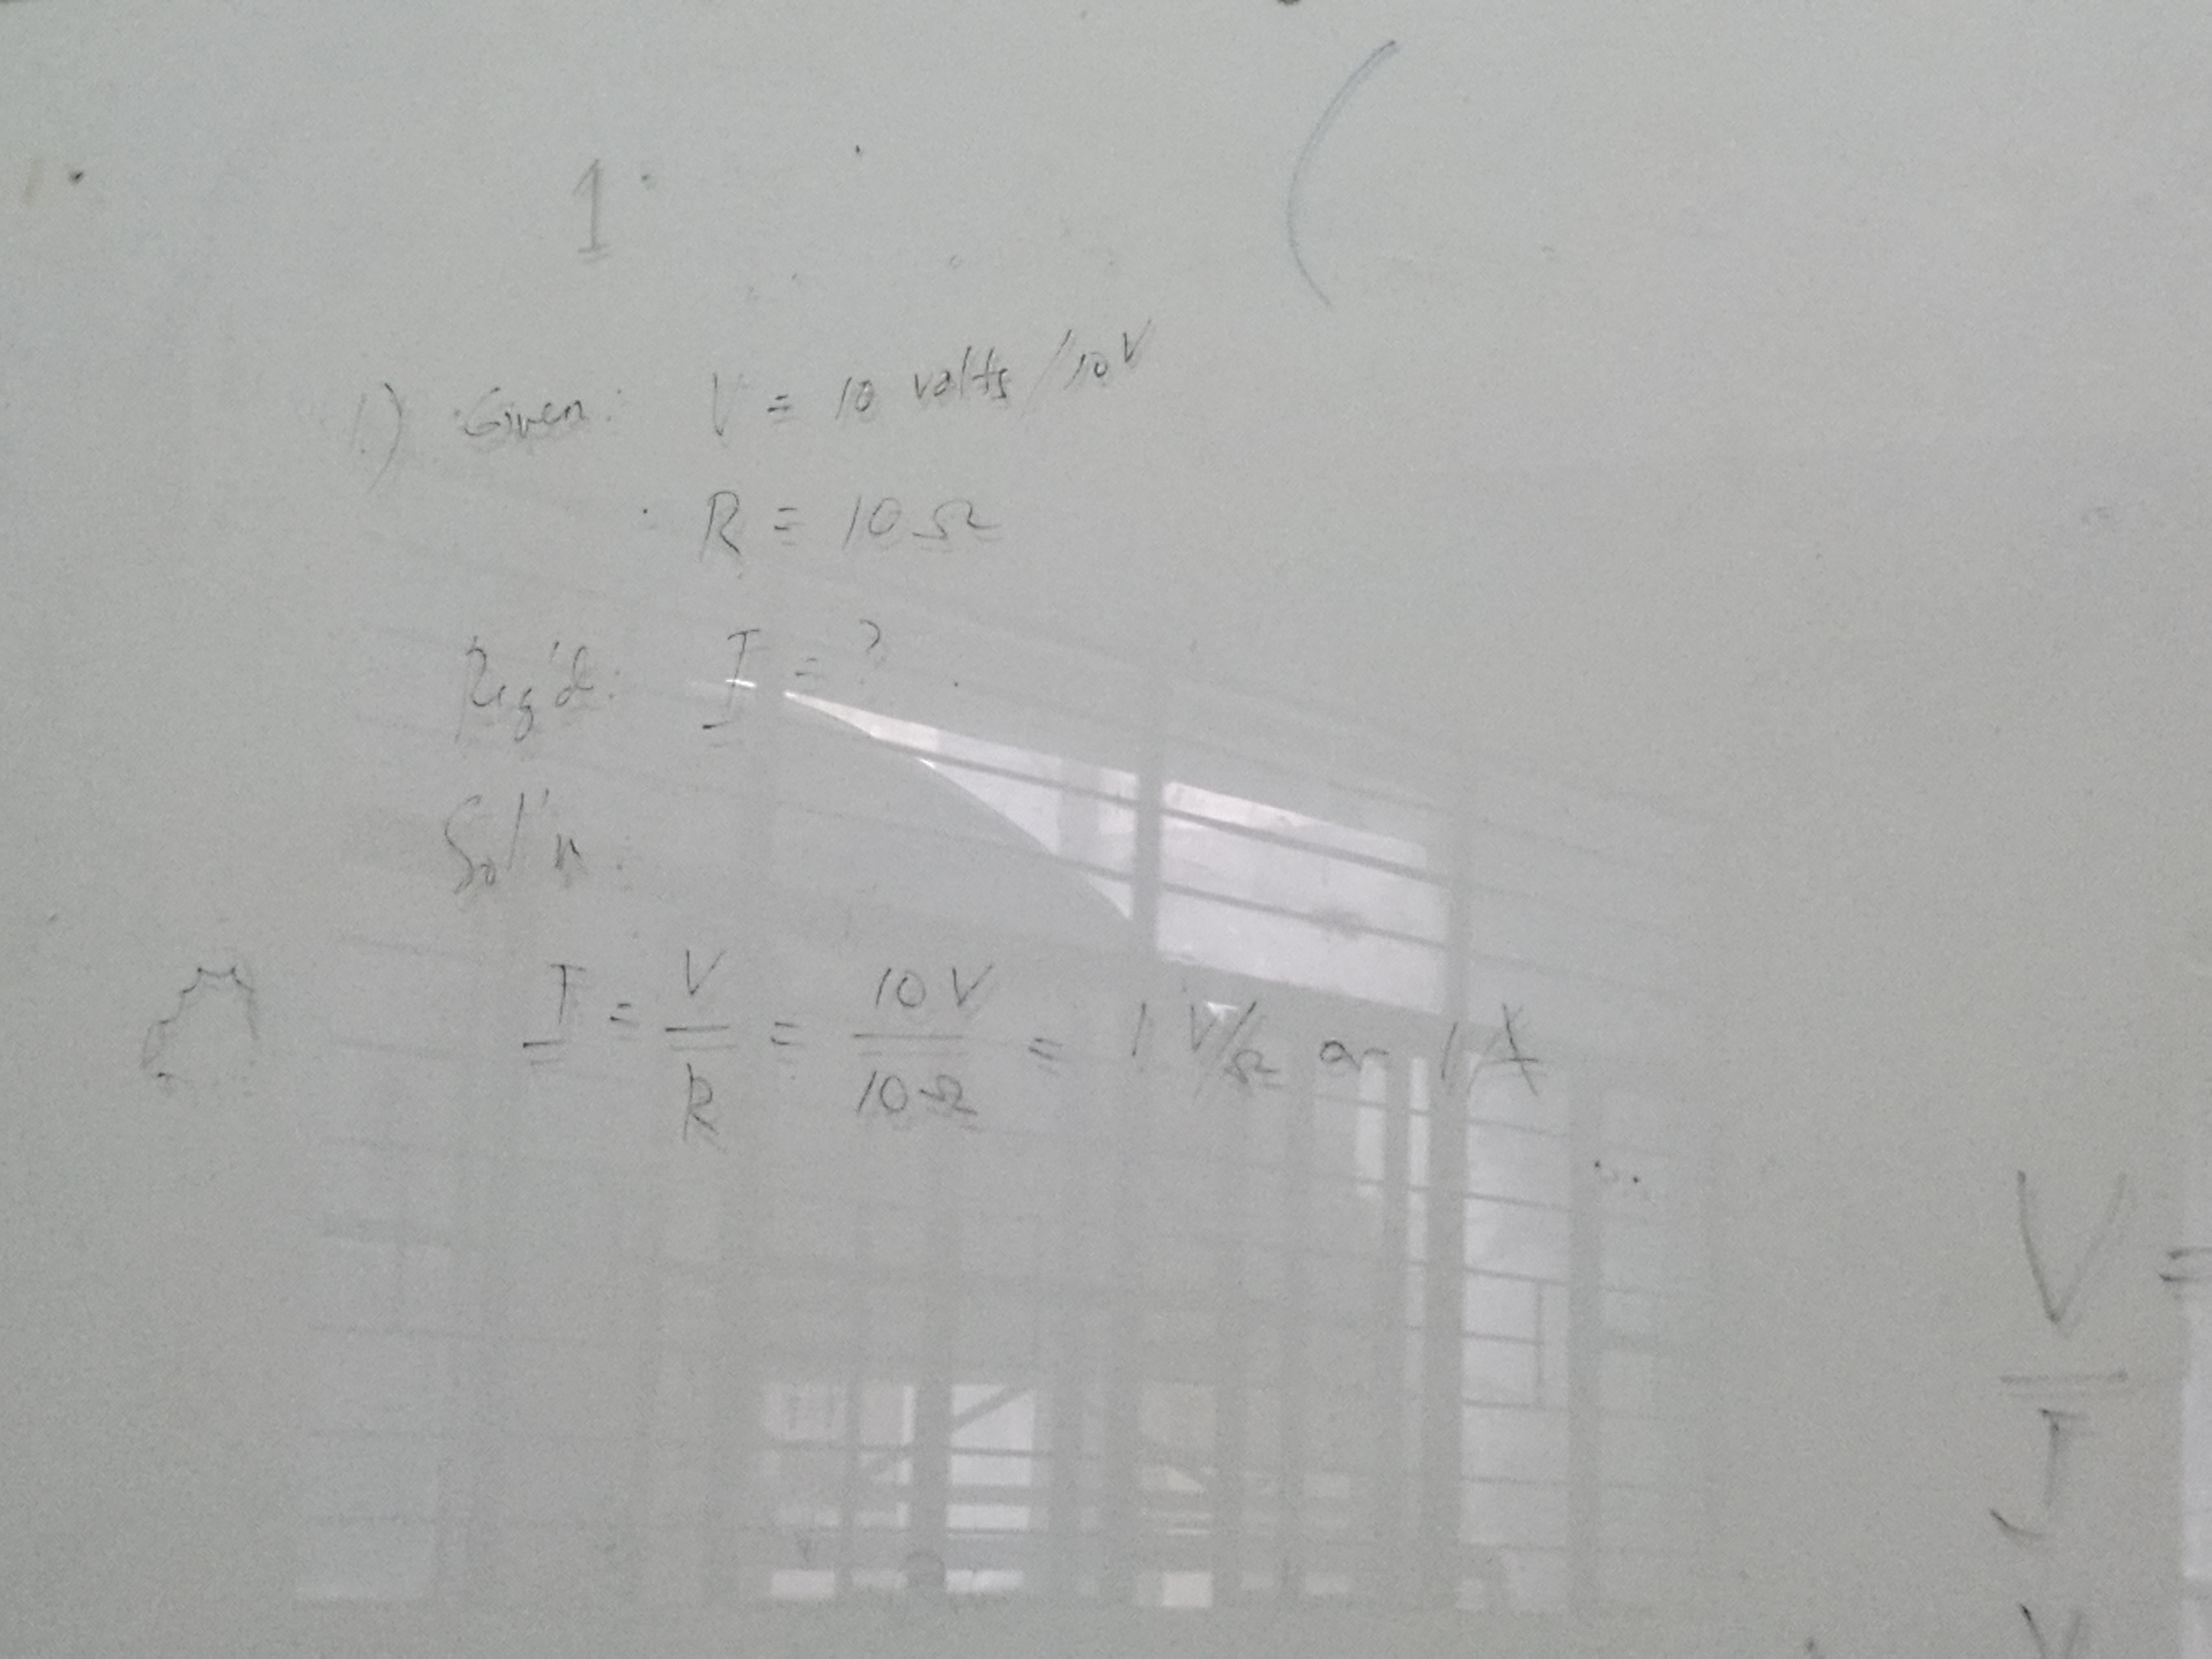 1
1.) Given: V = 10 volts / 10V
R = 10Ω
Req'd: I = ?
Sol'n:
I = V/R = 10V/10Ω = 1 V/Ω or 1 A
V =
I
V